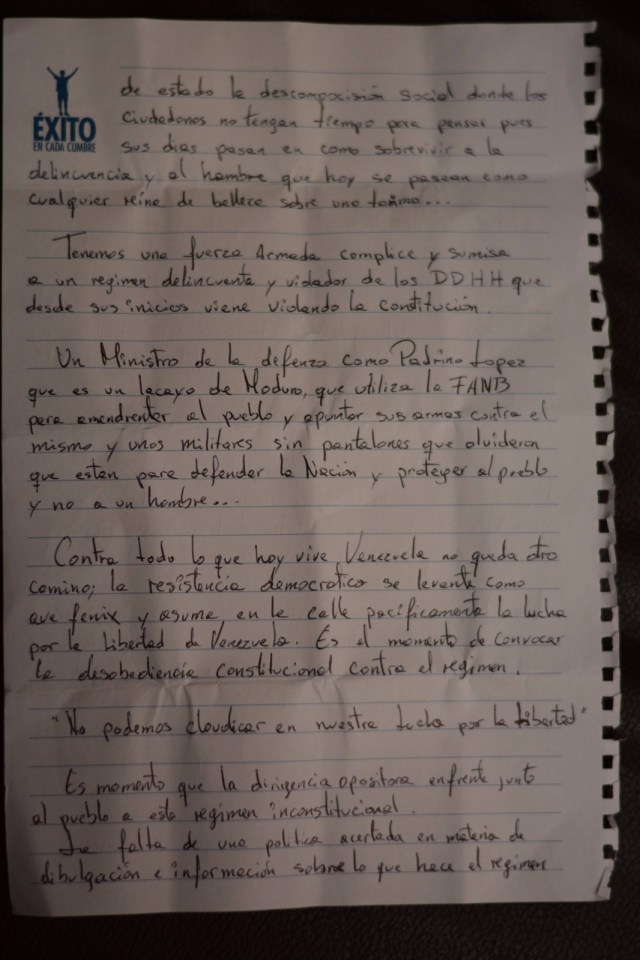 ÉXITO
EN CADA CUMBRE
de estado la descompocisión social donde los
Ciudadanos no tengan tiempo para pensar pues
sus dias pasan en como sobrevivir a la
delincuencia y al hambre que hoy se pasean como
cualquier reina de belleza sobre una
Tenemos una fuerza Armada complice y sumisa
a un regimen delincuente y violador de los DDHH que
desde sus inicios viene violando la constitución.
Un Ministro de la defenza como Padrino Lopez
que es un lacayo de Maduro, que utiliza la FANB
para amendrentar al pueblo y apuntar sus armas contra el
mismo y unos militares sin pantalones que olvidaron
que estan para defender la Nación y proteger al pueblo
y no a un hombre...
Contra todo lo que hoy vive Venezuela no queda otro
camino; la resistencia democratica se levanta como
ave fenix y asume en la calle pacíficamente la lucha
por la Libertad de Venezuela. Es el momento de convocar
la desobediencia constitucional contra el regimen.
"No podemos claudicar en nuestra lucha por la libertad"
Es momento que la dirigencia opositora enfrente junto
al pueblo a este regimen inconstitucional.
La falta de una politica acertada en materia de
dibulgación e información sobre lo que hace el regimen